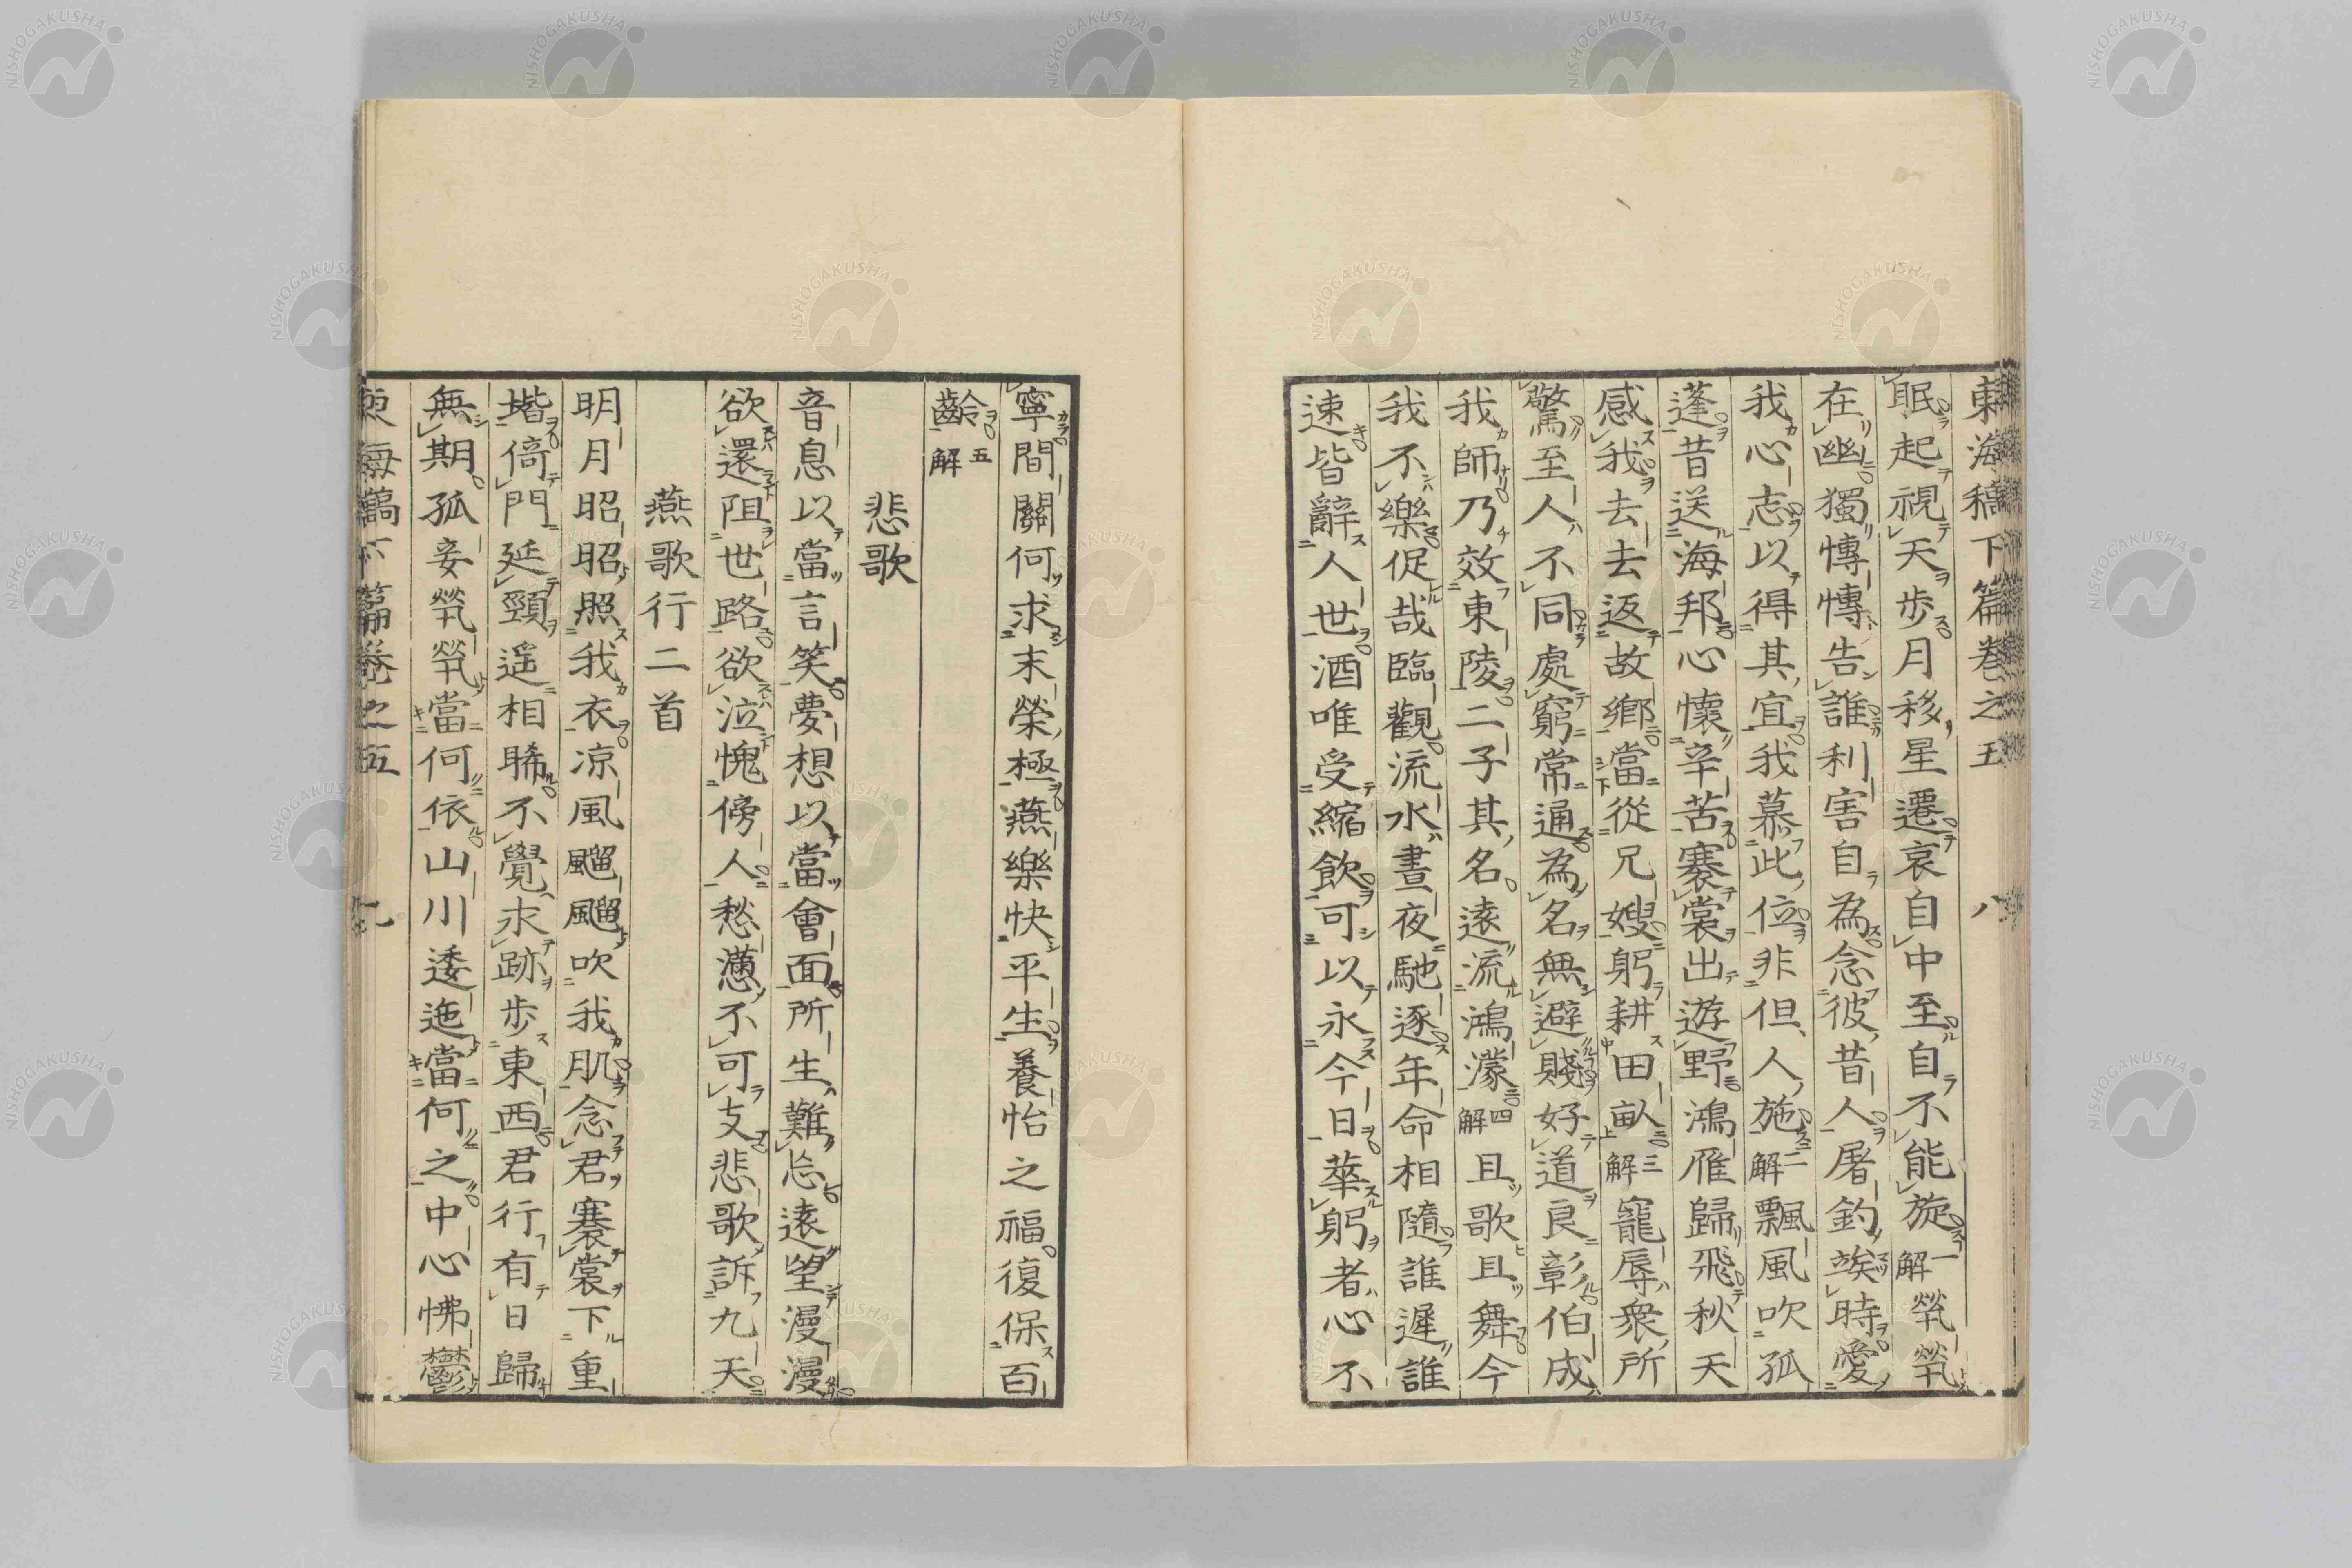 東海稿下篇卷之五 八
眠起視天步月移星遷哀自中至自不能旋一解煢煢
在幽獨慱慱告誰利害自為念彼昔人屠釣竢時愛
我心志以得其宜我慕此位非但人施二解飄風吹孤
蓬昔送海邦心懷辛苦褰裳出遊野鴻雁歸飛秋天
感我去去返故鄉當從兄嫂躬耕田畝三解寵辱衆所
驚至人不同處窮常通為名無避賤好道良彰伯成
我師乃效東陵二子其名遠流鴻濛四解且歌且舞今
我不樂促哉臨觀流水晝夜馳逐年命相隨誰遲誰
速皆辭人世酒唯受縮飲可以永今日華躬者心不
寧間關何求末榮極燕樂快平生養怡之福復保百
齡五解
悲歌
音息以當言笑夢想以當會面所生難忘遠望漫漫
欲還阻世路欲泣愧傍人愁懣不可支悲歌訴九天
燕歌行二首
明月昭昭照我衣凉風飀飀吹我肌念君褰裳下重
堦倚門延頸遥相睎不覺求跡步東西君行有日歸
無期孤妾煢煢當何依山川逶迤當何之中心怫鬱
東海稿下篇卷之五 九
NISHOGAKUSHA